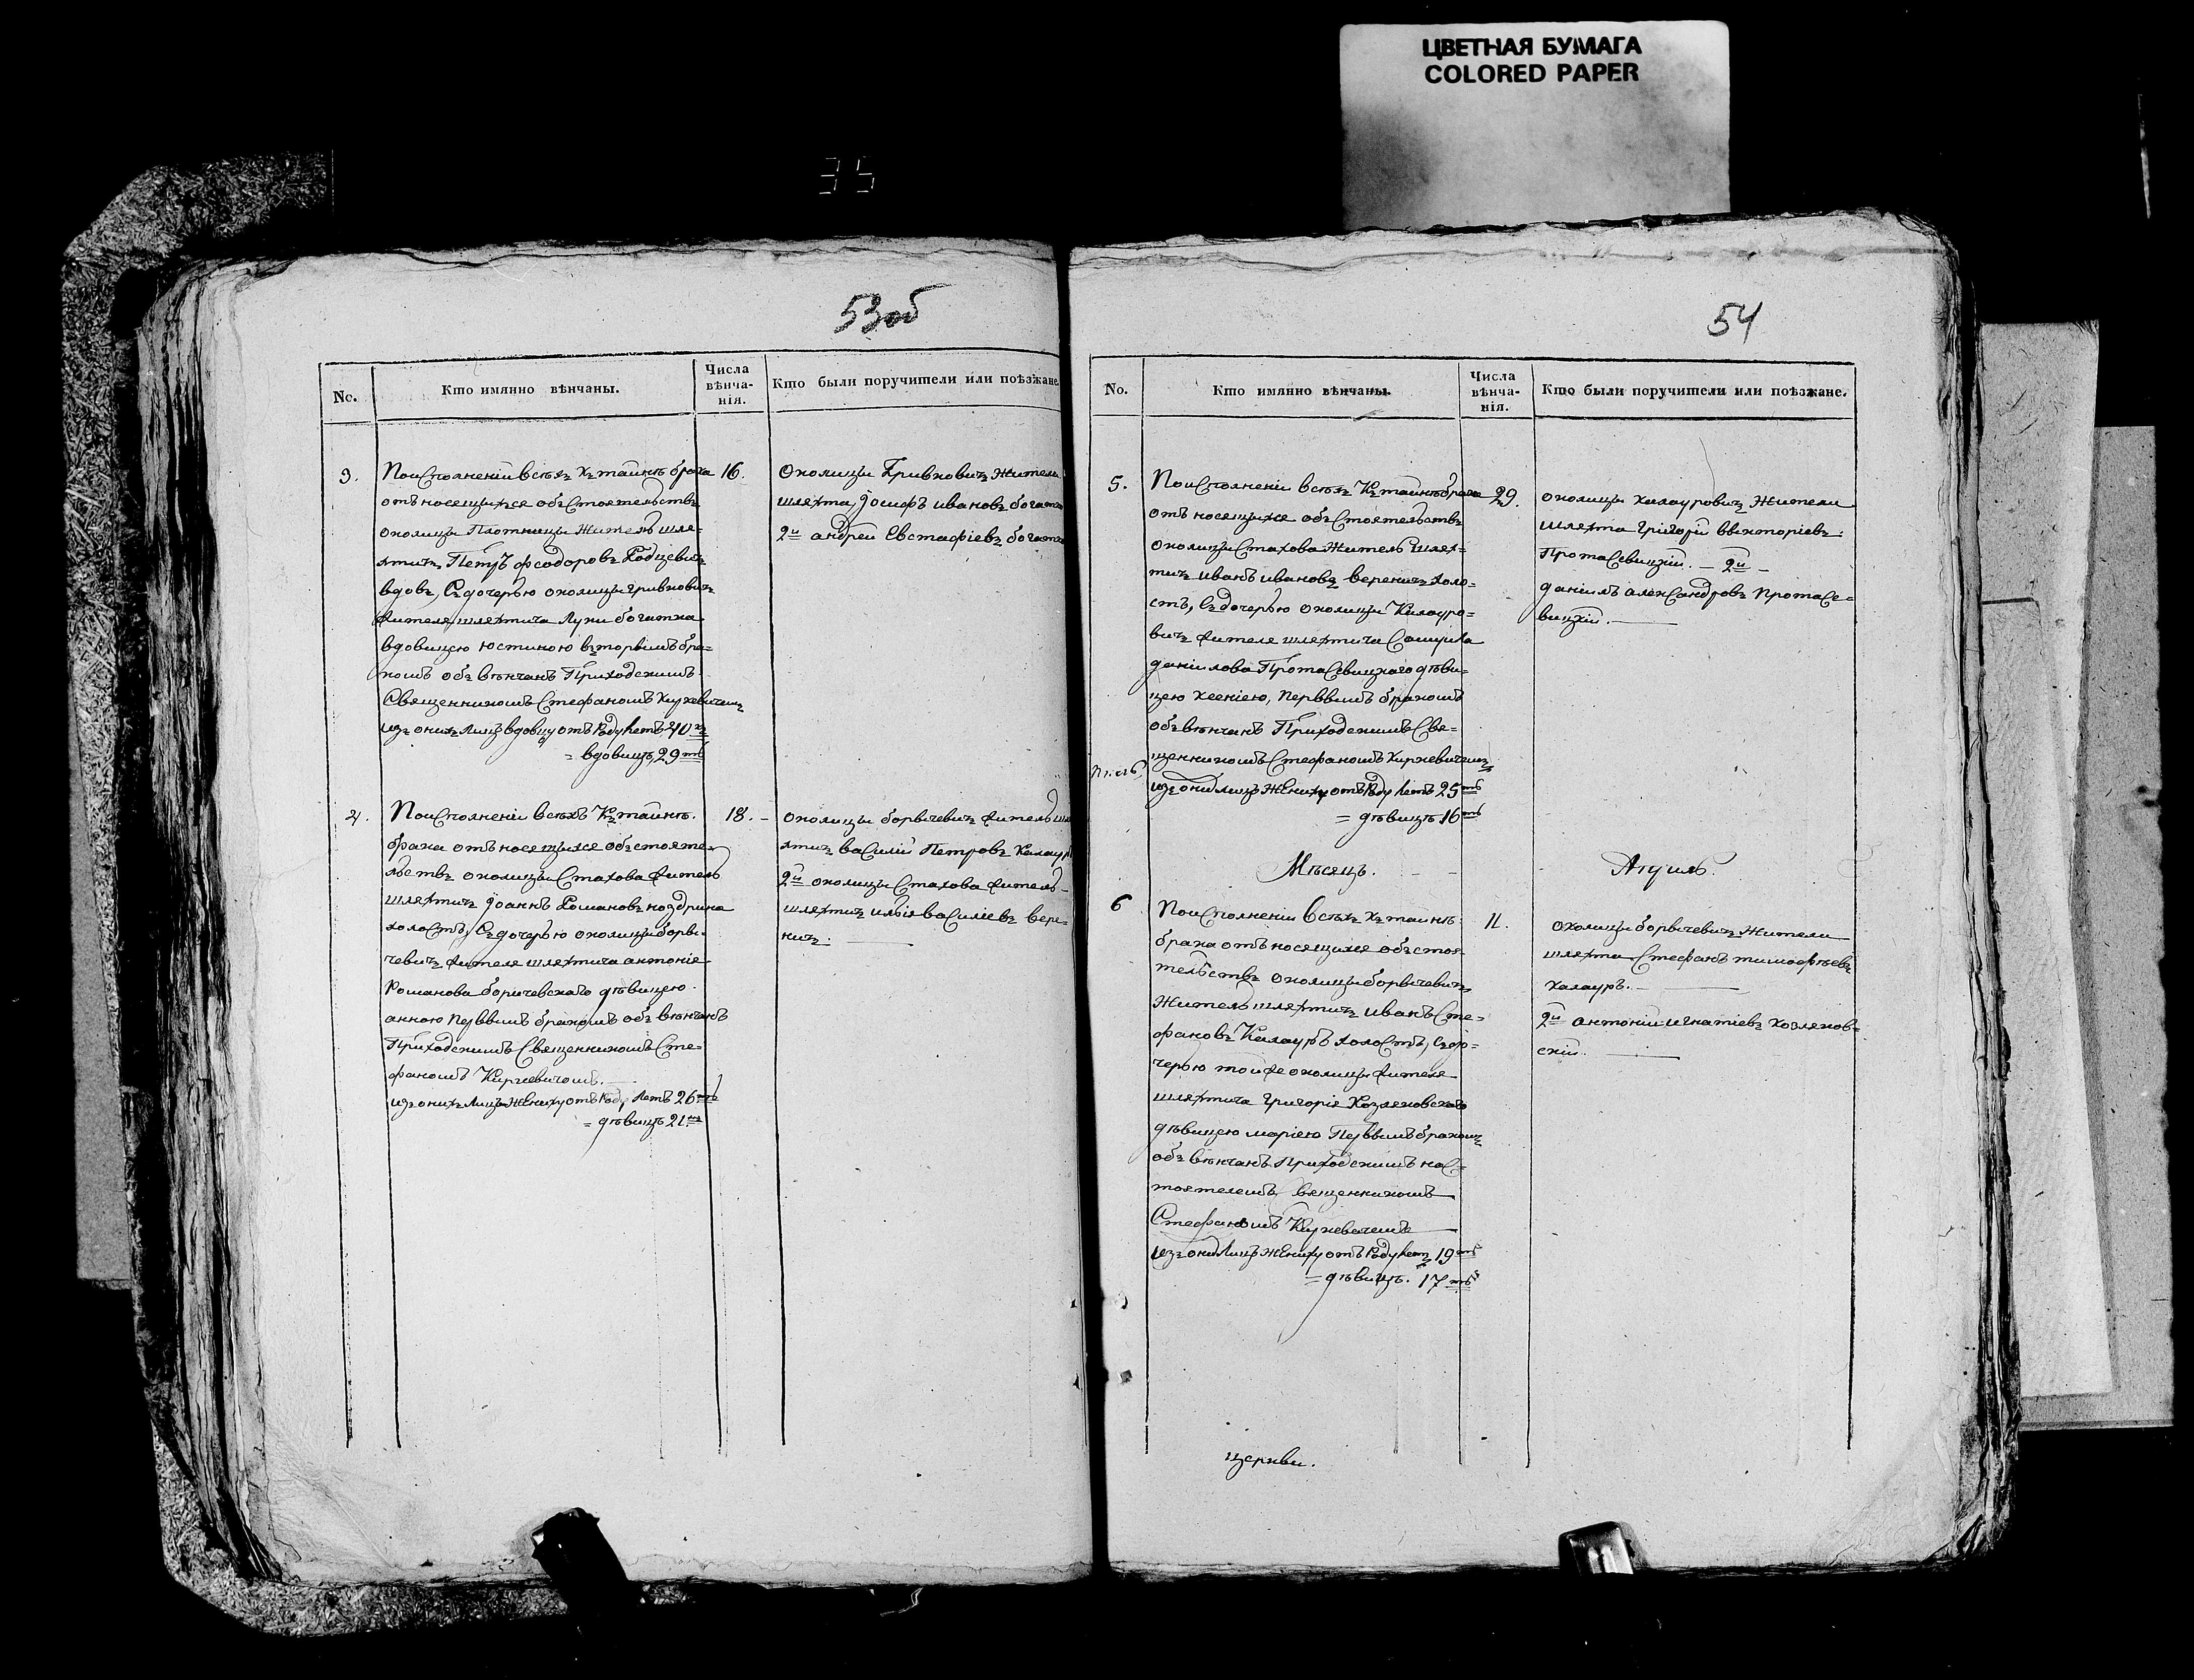 ЦВЕТНАЯ БУМАГА
COLORED PAPER
35
53об
No.
Кто имянно вѣнчаны.
Числа
вѣнча-
нія.
Кто были поручители или поѣзжане.
3.
По исполненіи всѣхъ къ таинѣ брака
отъносещихсе обстоятельствъ
околицы Плотницы житель шля=
хтичъ Петръ феодоровъ Родцевичъ
вдовъ, съ дочерью околицы Гривковичъ
жителя шляхтича Луки богатка
вдовицею юстиною вторымъ бра=
комъ обвѣнчанъ Приходскимъ
Священникомъ Стефаномъ Киркевичемъ
изъ онихъ лицъ вдовцу отъ Роду летъ 40хъ
= вдовицѣ 29тъ
16.
Околицы Гривковичъ жители
шляхта Іосифъ ивановъ богатко
2й андрей Евстафіевъ богатко
4.
По исполненіи всѣхъ къ таинѣ
брака отъносещихсе обстояте=
льствъ околицы Стахова житель
шляхтичъ Іоаннъ Романовъ ноздрина
холостъ, Съ дочерью околицы борви-
чевичъ жителя шляхтича антонія
Романова боричевскаго дѣвицею
анною первымъ бракомъ обвѣнчанъ
Приходскимъ Священникомъ Сте=
фаномъ Киркевичомъ.
изъ онихъ лицъ жениху отъ Роду Летъ 26тъ
= дѣвицѣ 21нъ
18.
околицы борвичевичъ житель шля
хтичъ василій Петровъ Калауръ
2й околицы Стахова житель
шляхтичъ илія василіевъ вере=
ничъ.
54
No.
Кто имянно вѣнчаны.
Числа
вѣнча-
нія.
Кто были поручители или поѣзжане.
5.
По исполненіи всѣхъ къ таинѣ брака
отъносещихсе обстоятельствъ
околицы Стахова житель шлях=
тичъ иванъ ивановъ вереничъ холо=
стъ, съ дочерью околицы Калауро=
вичъ жителя шляхтича Самуила
данилова Протасевицкаго дѣви=
цею ксеніею, первымъ бракомъ
обвѣнчанъ Приходскимъ Све=
щенникомъ Стефаномъ Киркевичемъ
изъ они лицъ жениху отъ Роду летъ 25тъ
= дѣвицѣ 16тъ
29.
околицы калауровичъ жители
шляхта григорій викторіевъ
Протасевицкій. — 2й —
даніилъ александровъ Протасе=
вицкій.
Мѣсяцъ.
Априль.
6
По исполненіи всѣхъ къ таинѣ
брака отъносящихся обстоя=
тельствъ околицы борвичевичъ
житель шляхтичъ иванъ Сте=
фановъ Калауръ холостъ, съ до=
черью тойже околицы жителя
шляхтича григорія Козляковскаго
дѣвицею маріею Первымъ бракомъ
обвѣнчанъ Приходскимъ нас=
тоятелемъ священникомъ
Стефаномъ Киркевичемъ
изъ они лицъ жениху отъ Роду летъ 19тъ
= дѣвицѣ. 17тъ
11.
околицы борвичевичъ жители
шляхта Стефанъ тимофѣевъ
калауръ.
2й антоній игнатіевъ козляков=
скій.
церкви.